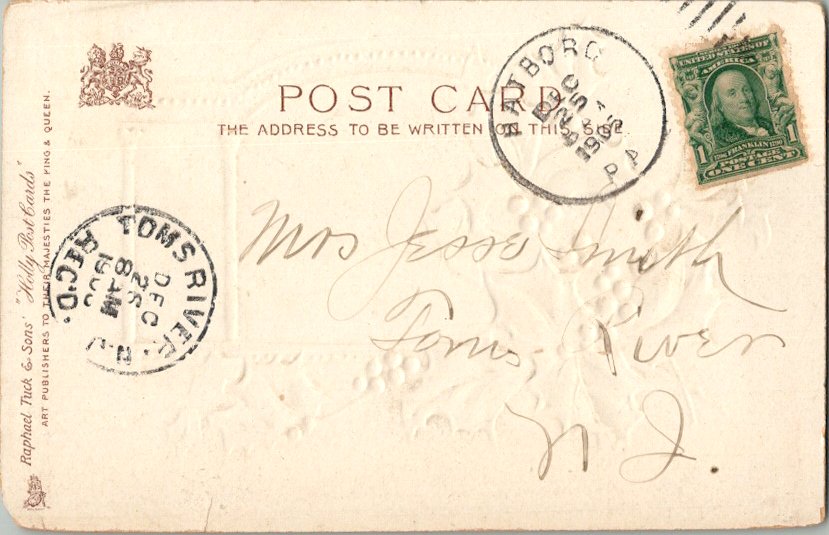 POST CARD
THE ADDRESS TO BE WRITTEN ON THIS SIDE.
HATBORO
DEC
25
1905
PA
UNITED STATES OF
AMERICA
1 FRANKLIN 1
POSTAGE
ONE CENT
Mrs Jesse Smith
Toms River
N J
TOMS RIVER. N.J.
DEC
26
8 AM
REC'D.
Raphael Tuck & Sons' "Holly Post Cards"
ART PUBLISHERS TO THEIR MAJESTIES THE KING & QUEEN.